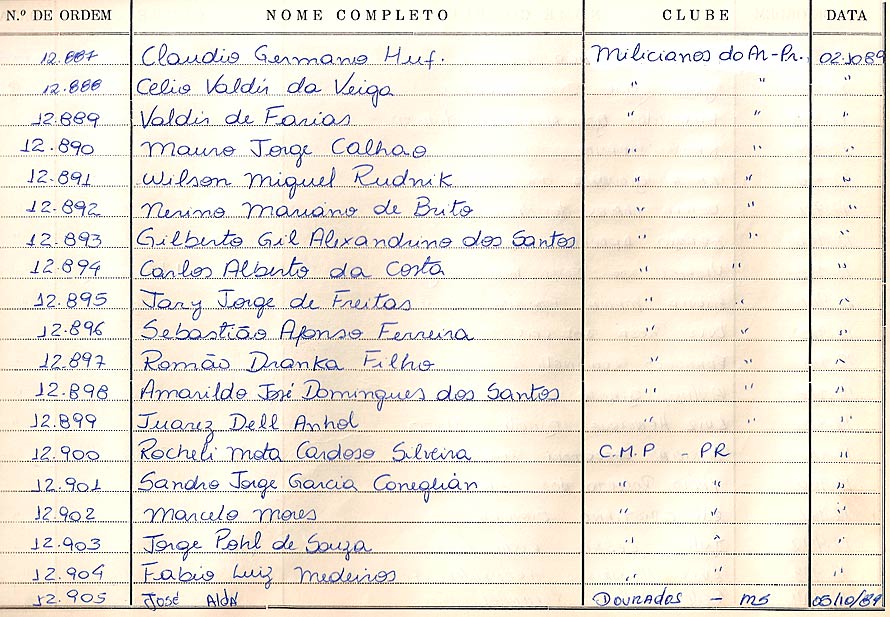 N.º DE ORDEM NOME COMPLETO CLUBE DATA
12.887 Claudio Germano Huf. Milicianos do Ar-Pr. 02.10.89
12.888 Celio Valdir da Veiga " " "
12.889 Valdir de Farias " " "
12.890 Mauro Jorge Calhao " " "
12.891 Wilson Miguel Rudnik " " "
12.892 Nerino Mariano de Brito " " "
12.893 Gilberto Gil Alexandrino dos Santos " " "
12.894 Carlos Alberto da Costa " " "
12.895 Jary Jorge de Freitas " " "
12.896 Sebastião Afonso Ferreira " " "
12.897 Romão Dranka Filho " " "
12.898 Amarildo José Domingues dos Santos " " "
12.899 Juarez Dell Anhol " " "
12.900 Rocheli Mota Cardoso Silveira C.M.P - PR "
12.901 Sandro Jorge Garcia Coneglián " " "
12.902 Marcelo Mores " " "
12.903 Jorge Pohl de Souza " " "
12.904 Fabio Luiz Medeiros " " "
12.905 José Dourados - MS 05/10/89